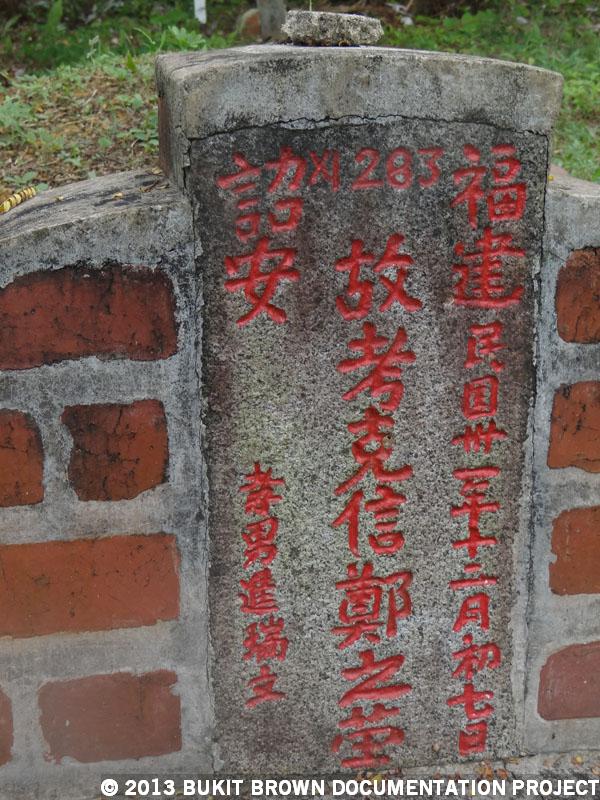 XI 283
福建民国卅一年十二月初七日
故考克信鄭之塋
詔安
孝男進瑞文
© 2013 BUKIT BROWN DOCUMENTATION PROJECT